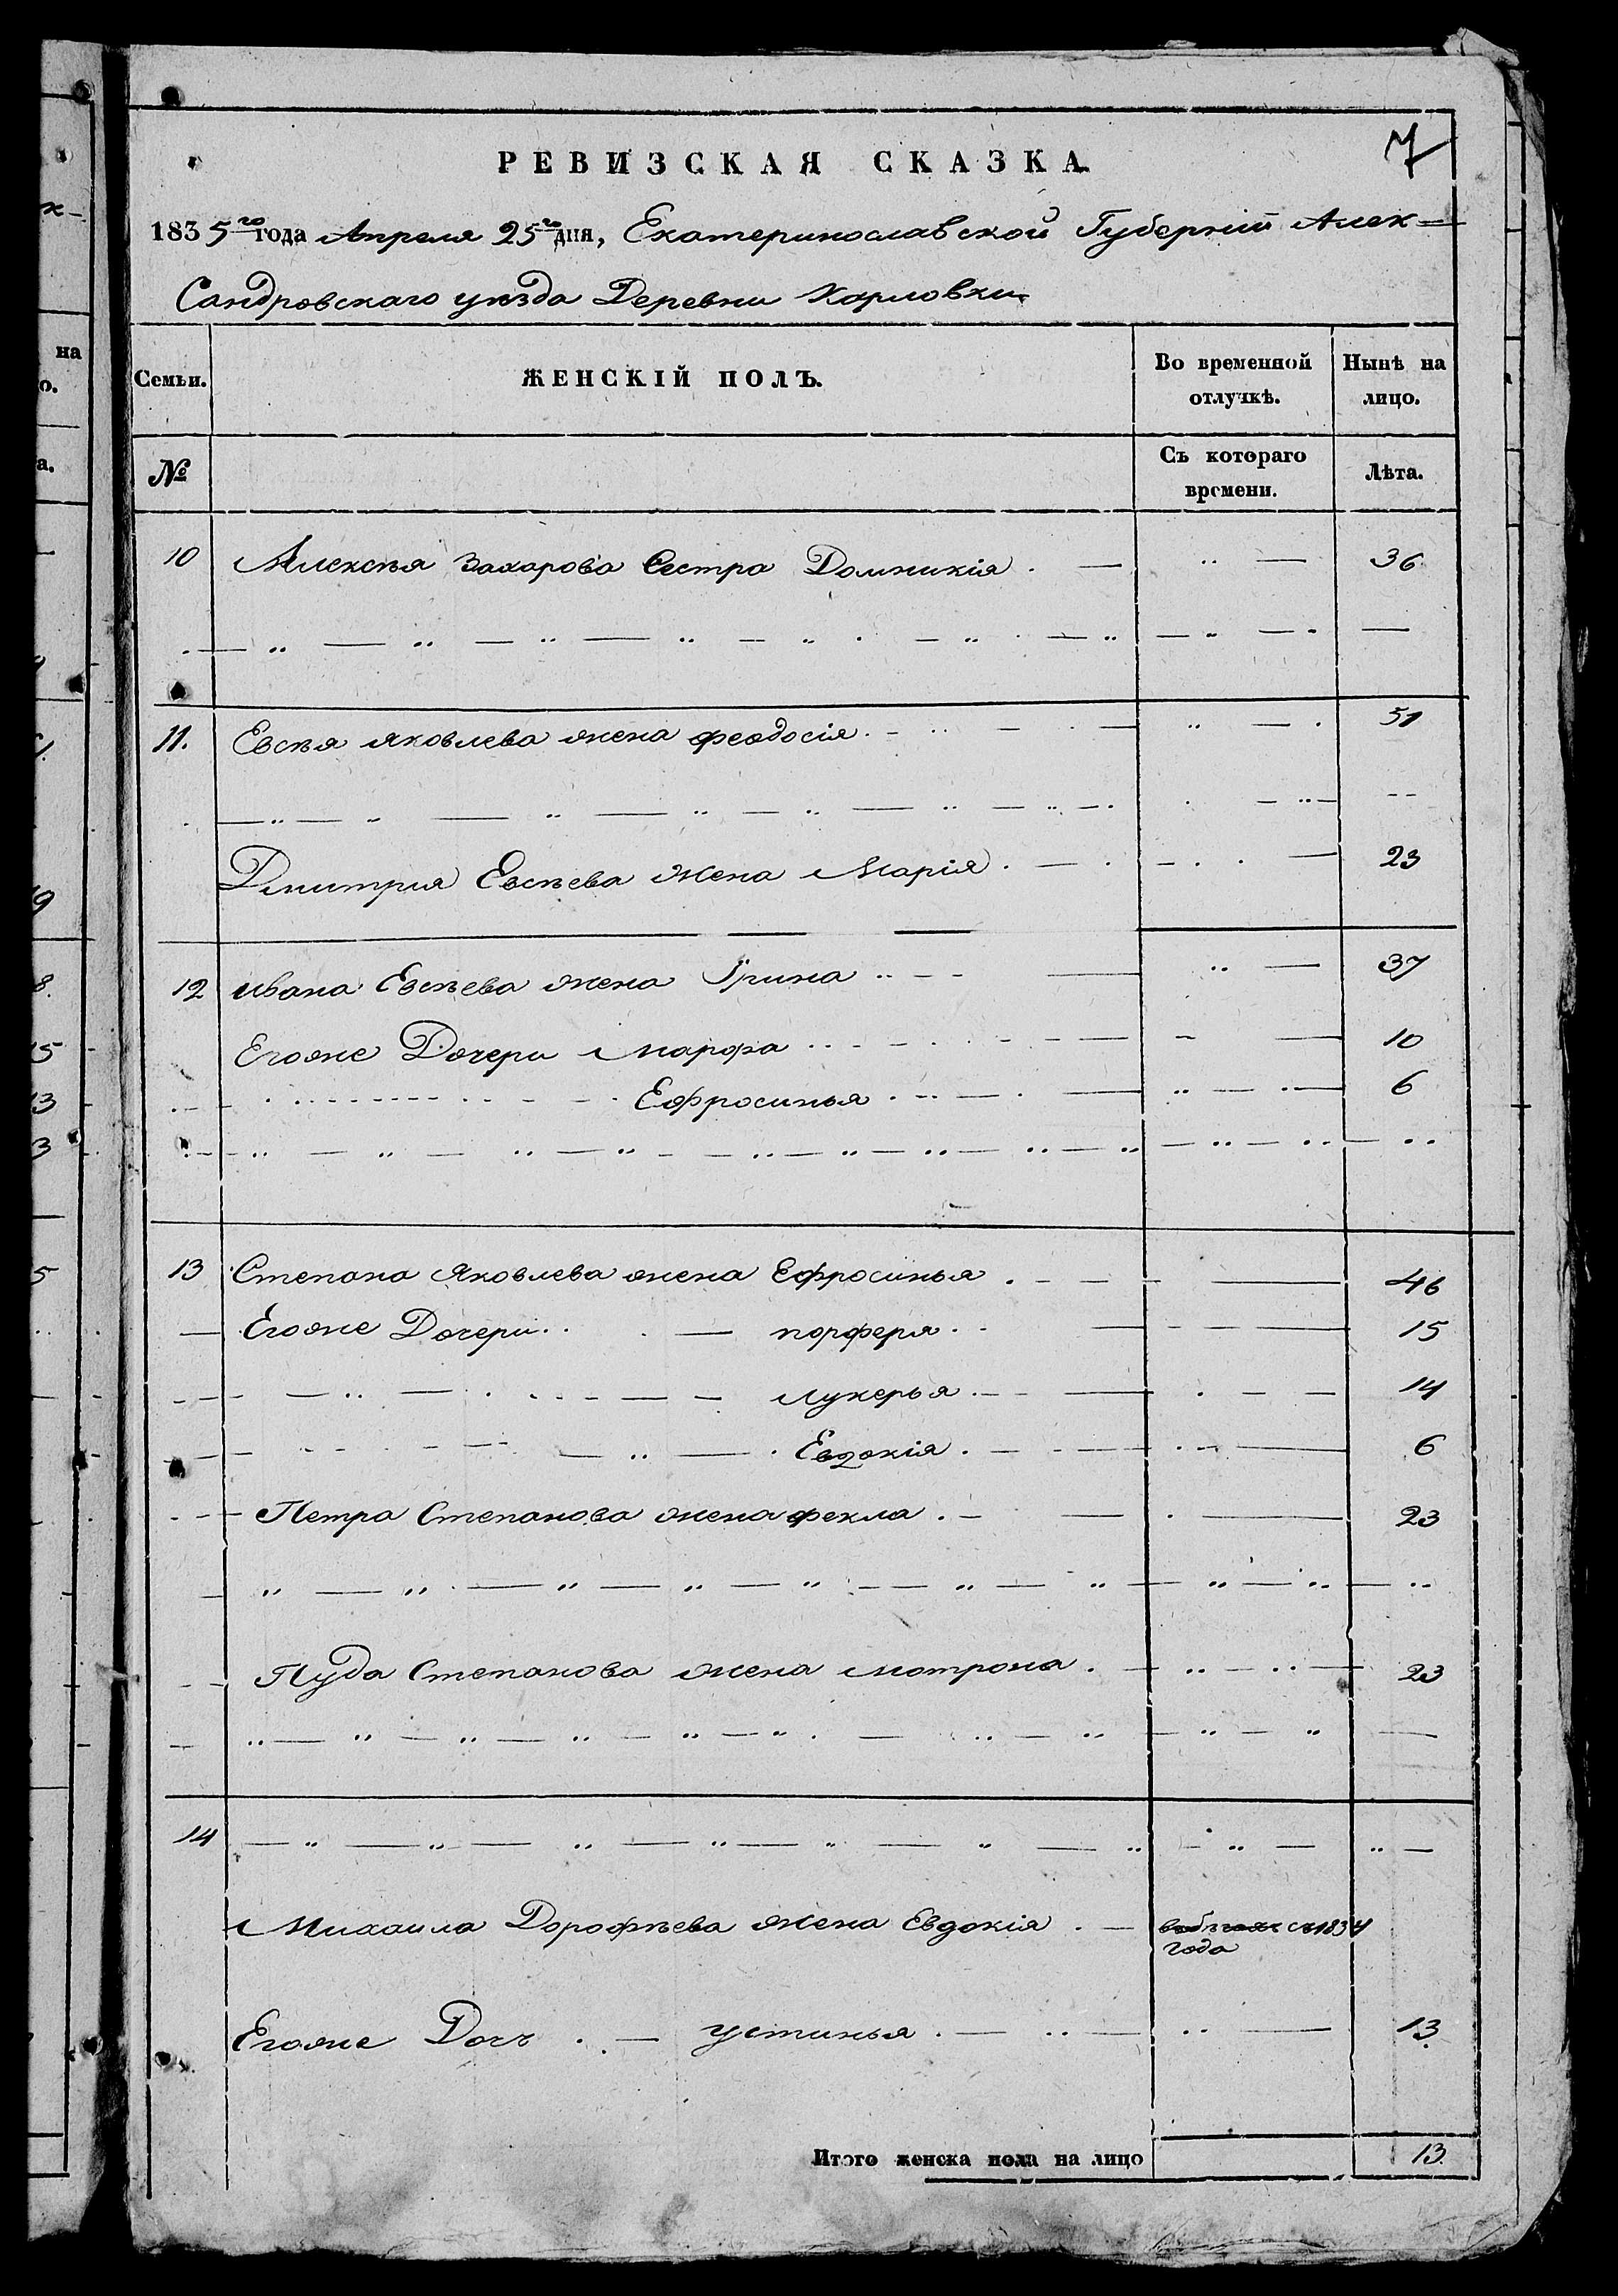 7
РЕВИЗСКАЯ СКАЗКА
1835го года Апреля 25го дня, Екатеринославской Губерніи Алек=
Сандровскаго уѣзда Деревни Карловки
Семьи. ЖЕНСКІЙ ПОЛЪ. Во временной отлучкѣ. Нынѣ на лицо.
№ Съ котораго времени. Лѣта.
10 Алексѣя Захарова Сестра Домникія 36
11. Евсѣя Яковлева жена Феодосія 51
Дмитрія Евсѣева жена Марія 23
12 Ивана Евсѣева жена Ірина 37
Егоже Дочери Марфа 10
Ефросинья 6
13 Степана Яковлева жена Ефросинья 46
Егоже Дочери порферя 15
лукерья 14
Евдокія 6
Петра Степанова жена Фекла 23
Пуда Степанова жена матрона 23
14
Михаила Дорофѣева жена Евдокія съ 1834
года
Егоже Дочь устинья 13
Итого женска пола на лицо 13.
на
о.
а.
19
8.
15
13
3
5